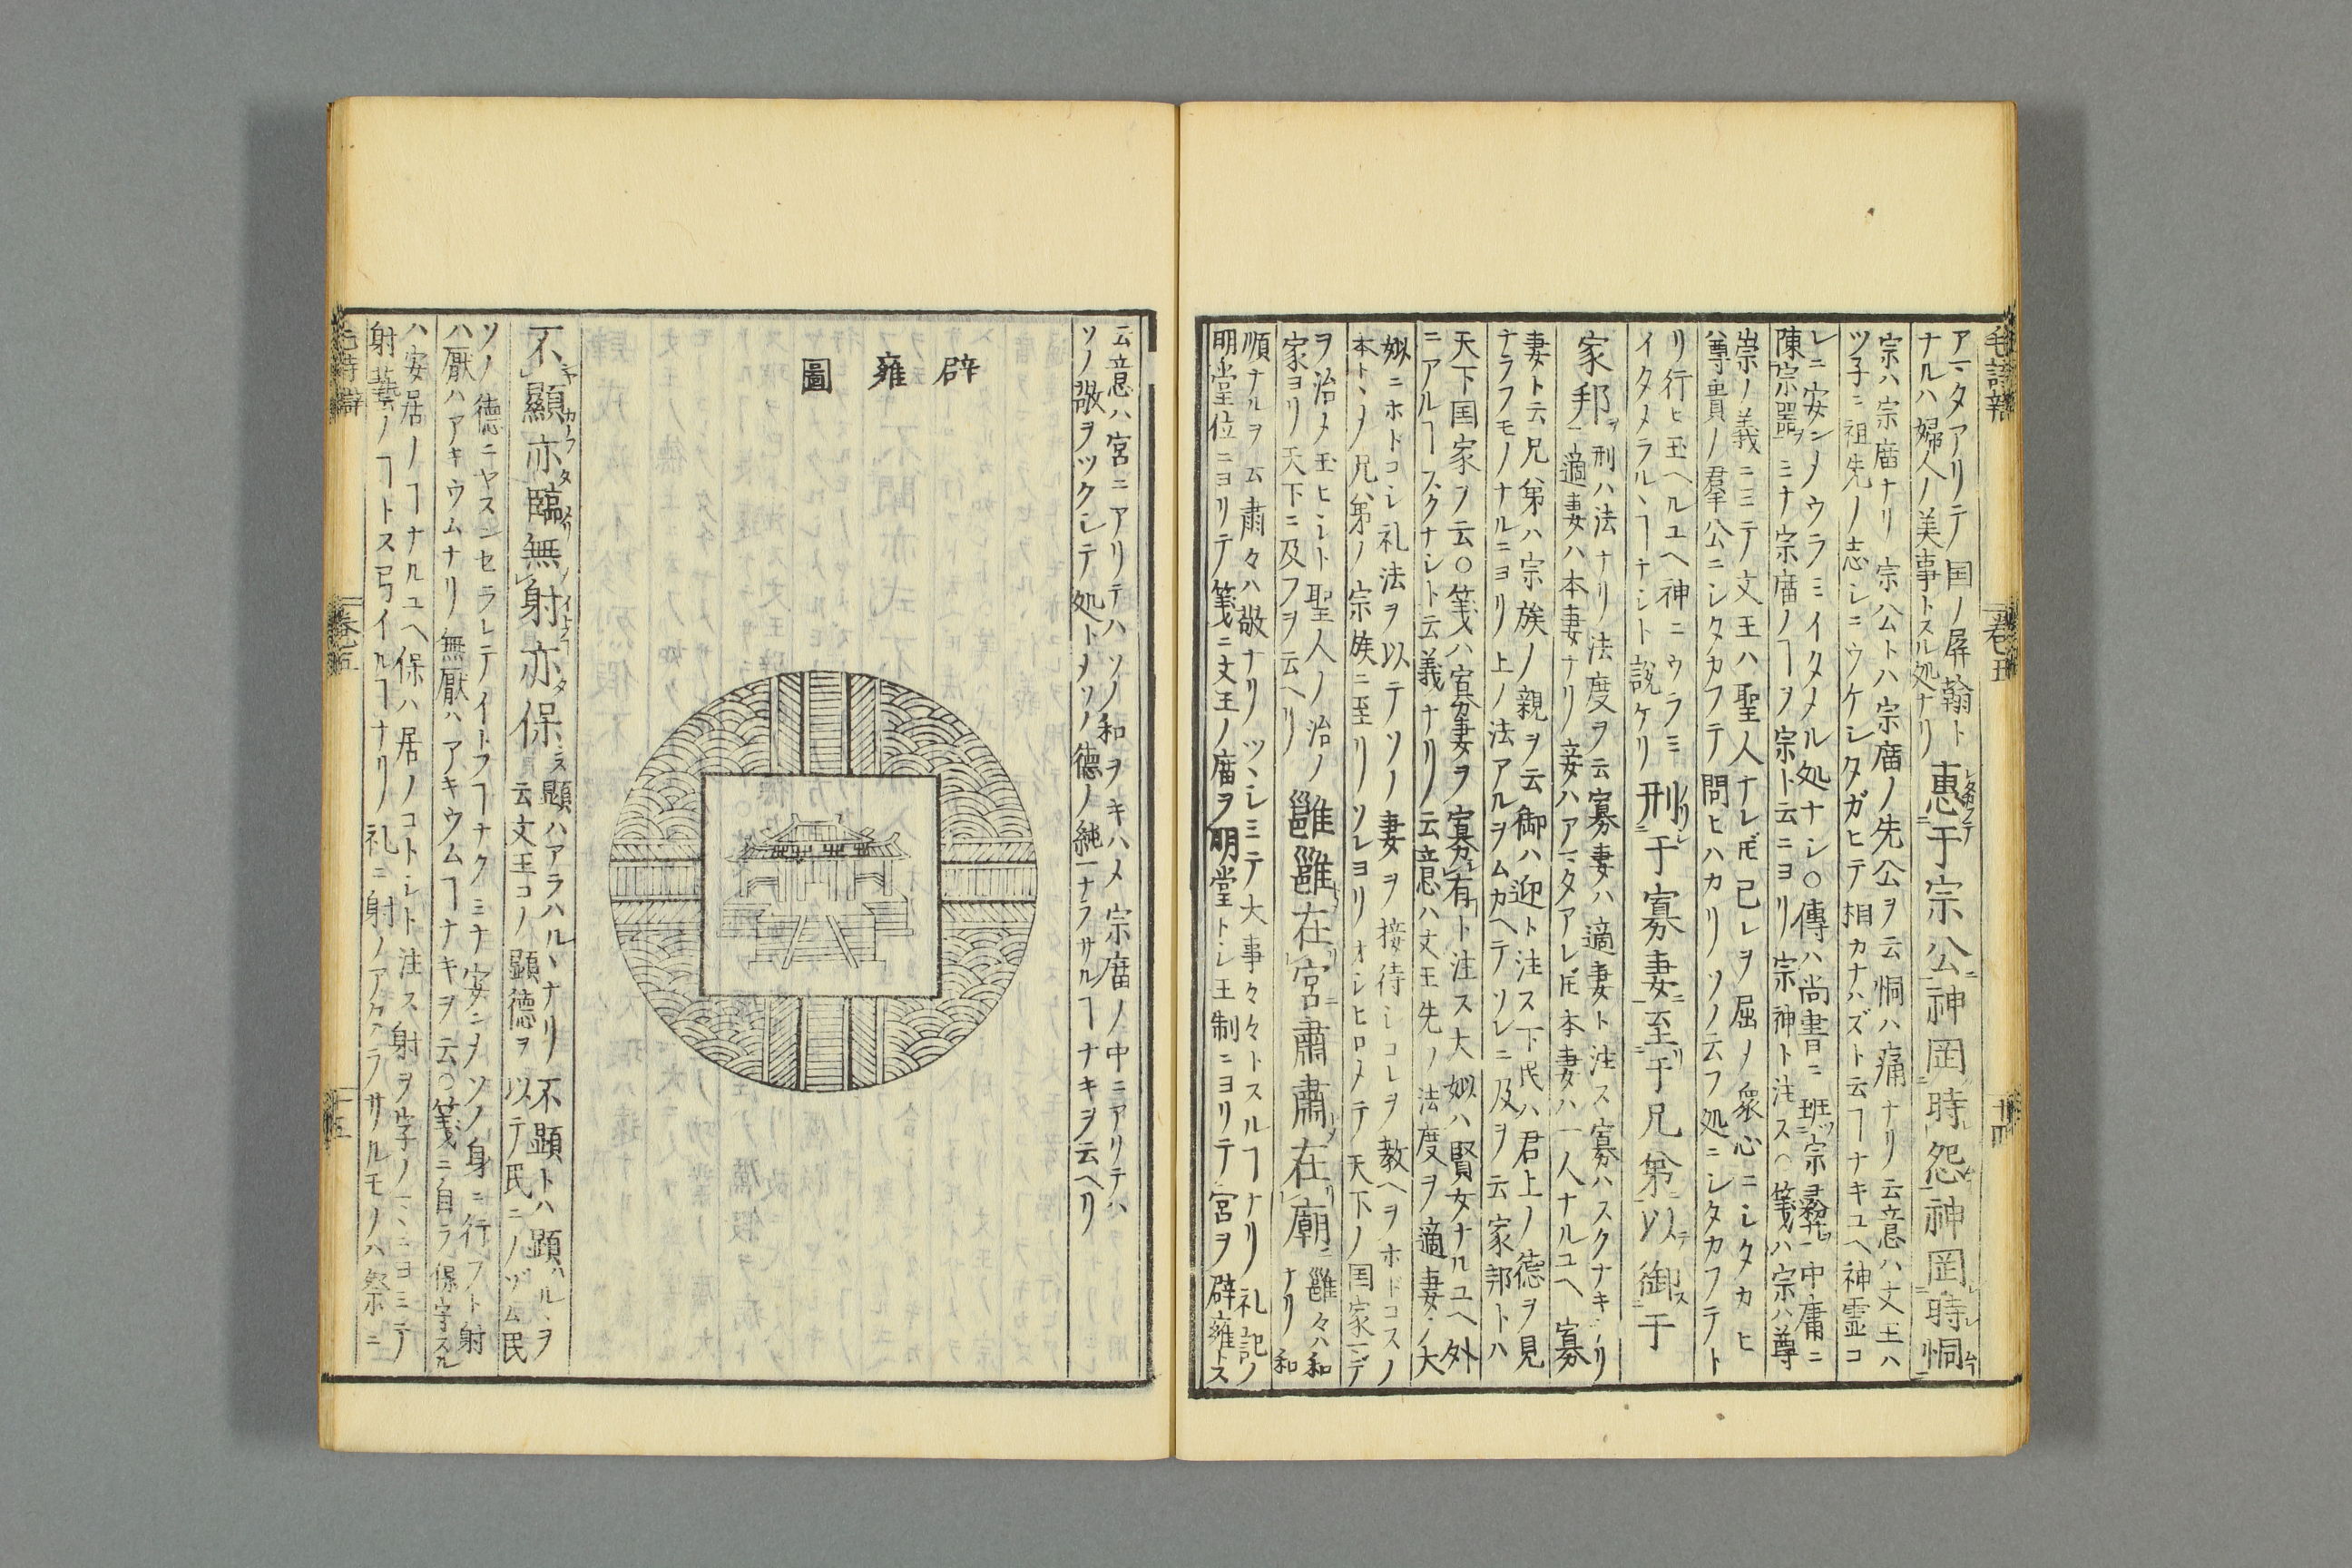 毛詩辯
卷五
十四
アマタアリテ国ノ屏翰ト
ナルハ婦人ノ美事トスル処ナリ
惠于宗公神罔時怨神罔時恫
宗ハ宗廟ナリ宗公トハ宗廟ノ先公ヲ云恫ハ痛ナリ云意ハ文王ハ
ツ子ニ祖先ノ志シニウケシタガヒテ相カナハズト云ヿナキユヘ神霊コ
レニ安シノウラミイタメル処ナシ○傳ハ尚書ニ班宗彛中庸ニ
陳宗器ヲミナ宗廟ノヿヲ宗ト云ニヨリ宗神ト注ス○箋ハ宗ハ尊
崇ノ義ニミテ文王ハ聖人ナレ𪜈己レヲ屈メ衆心ニシタカヒ
尊貴ノ羣公ニシタカフテ問ヒハカリソノ云フ処ニシタカフテト
リ行ヒ玉ヘルユヘ神ニウラミ
イタメラルヽヿナシト説ケリ
刑于寡妻至于兄弟以御于
家邦
刑ハ法ナリ法度ヲ云寡妻ハ適妻ト注ス寡ハスクナキナリ
適妻ハ本妻ナリ妾ハアマタアレ𪜈本妻ハ一人ナルユヘ寡
妻ト云兄弟ハ宗族ノ親ヲ云御ハ迎ト注ス下民ハ君上ノ徳ヲ見
ナラフモノナルニヨリ上ノ法アルヲムカヘテソレニ及ヲ云家邦トハ
天下国家ヲ云○箋ハ寡妻ヲ寡有ト注ス大姒ハ賢女ナルユヘ外
ニアルヿスクナシト云義ナリ云意ハ文王先ノ法度ヲ適妻ノ大
姒ニホトコシ礼法ヲ以テソノ妻ヲ接待シコレヲ教ヘヲホドコスノ
本トヽメ兄弟ノ宗族ニ至リソレヨリオシヒロメテ天下ノ国家マデ
ヲ治メ玉ヒシト聖人ノ治ノ
家ヨリ天下ニ及フヲ云ヘリ
雝雝在宮肅肅在廟
雝々ハ和
ナリ和
順ナルヲ云肅々ハ敬ナリツヽシミテ大事々々トスルヿナリ礼記ノ
明堂位ニヨリテ箋ニ文王ノ廟ヲ明堂トシ王制ニヨリテ宮ヲ辟雍トス
云意ハ宮ニアリテハソノ和ヲキハメ宗廟ノ中ニアリテハ
ソノ敬ヲツクシテ処トメソノ徳ノ純一ナラサルヿナキヲ云ヘリ
辟雍圖
不顯亦臨無射亦保
顕ハアラハルヽナリ不顕トハ顕ハルヽヲ
云文王コノ顕徳ヲ以テ民ニノゾム民
ソノ徳ニヤスンセラレテイトフヿナクミナ安シメソノ身ニ行フト射
ハ厭ハアキウムナリ無厭ハアキウムヿナキヲ云○箋ニ自ラ保守スル
ハ安居ノヿナルユヘ保ハ居ノコトシト注ス射ヲ字ノマヽニヨミテ
射藝ノヿトス弓イルヿナリ礼ニ射ノアタラサルモノハ祭ニ
毛詩辯
卷五
十五